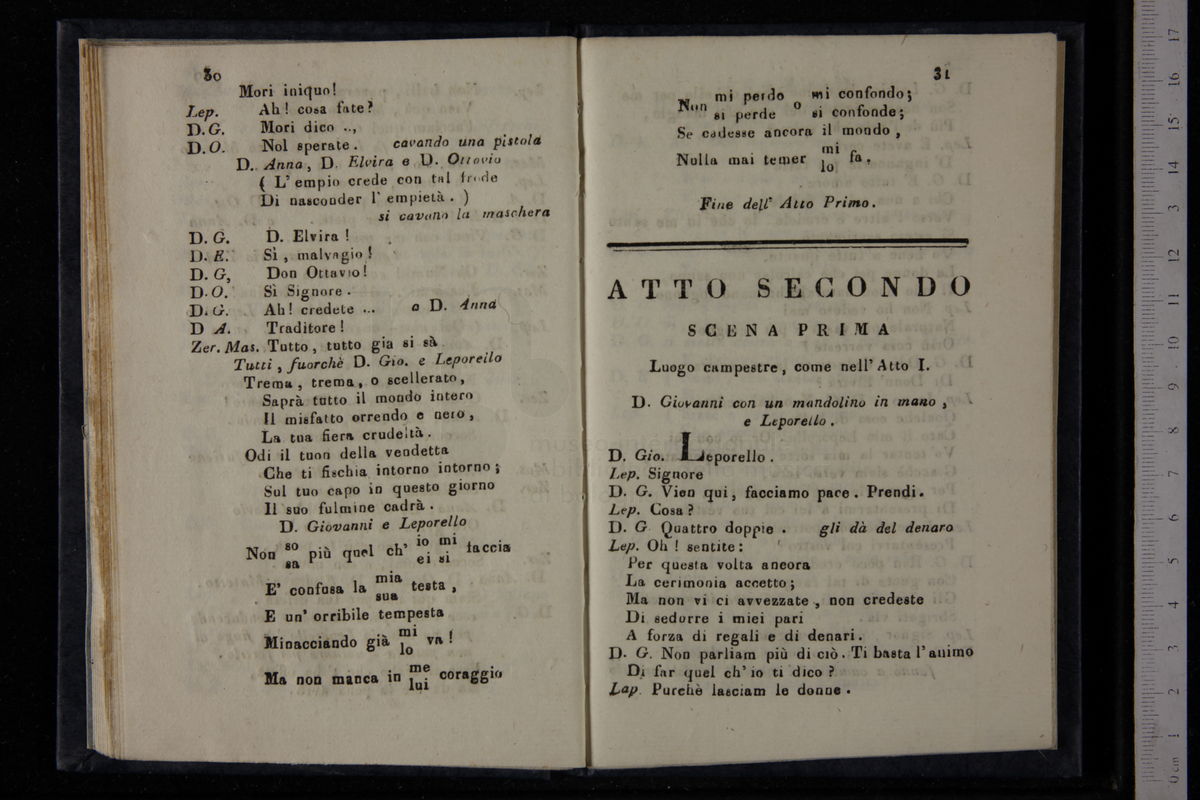 30
Mori iniquo!
Lep. Ah! cosa fate?
D.G. Mori dico ..,
D.O. Nol sperate. cavando una pistola
D. Anna, D. Elvira e D. Ottavio
( L' empio crede con tal frode
Di nasconder l' empietà. )
si cavano la maschera
D. G. D. Elvira!
D. E. Sì, malvagio!
D. G, Don Ottavio!
D.O. Sì Signore.
D.G. Ah! credete ... a D. Anna
D A. Traditore!
Zer. Mas. Tutto, tutto gia si sà.
Tutti, fuorchè D. Gio. e Leporello
Trema, trema, o scellerato,
Saprà tutto il mondo intero
Il misfatto orrendo e nero,
La tua fiera crudeltà.
Odi il tuon della vendetta
Che ti fischia intorno intorno;
Sul tuo capo in questo giorno
Il suo fulmine cadrà.
D. Giovanni e Leporello
Non so più quel ch' io mi faccia
sa ei si
E' confusa la mia testa,
sua
E un' orribile tempesta
Minacciando già mi va!
lo
Ma non manca in me coraggio
lui
31
Non mi perdo o mi confondo;
si perde si confonde;
Se cadesse ancora il mondo,
Nulla mai temer mi fa.
lo
Fine dell' Atto Primo.
ATTO SECONDO
SCENA PRIMA
Luogo campestre, come nell' Atto I.
D. Giovanni con un mandolino in mano,
e Leporello.
D. Gio. Leporello.
Lep. Signore
D. G. Vien qui, facciamo pace. Prendi.
Lep. Cosa?
D. G Quattro doppie. gli dà del denaro
Lep. Oh! sentite:
Per questa volta ancora
La cerimonia accetto;
Ma non vi ci avvezzate, non credeste
Di sedurre i miei pari
A forza di regali e di denari.
D. G. Non parliam più di ciò. Ti basta l'animo
Di far quel ch' io ti dico?
Lap. Purchè lasciam le donne.
0 cm 1 2 3 4 5 6 7 8 9 10 11 12 13 14 15 16 17